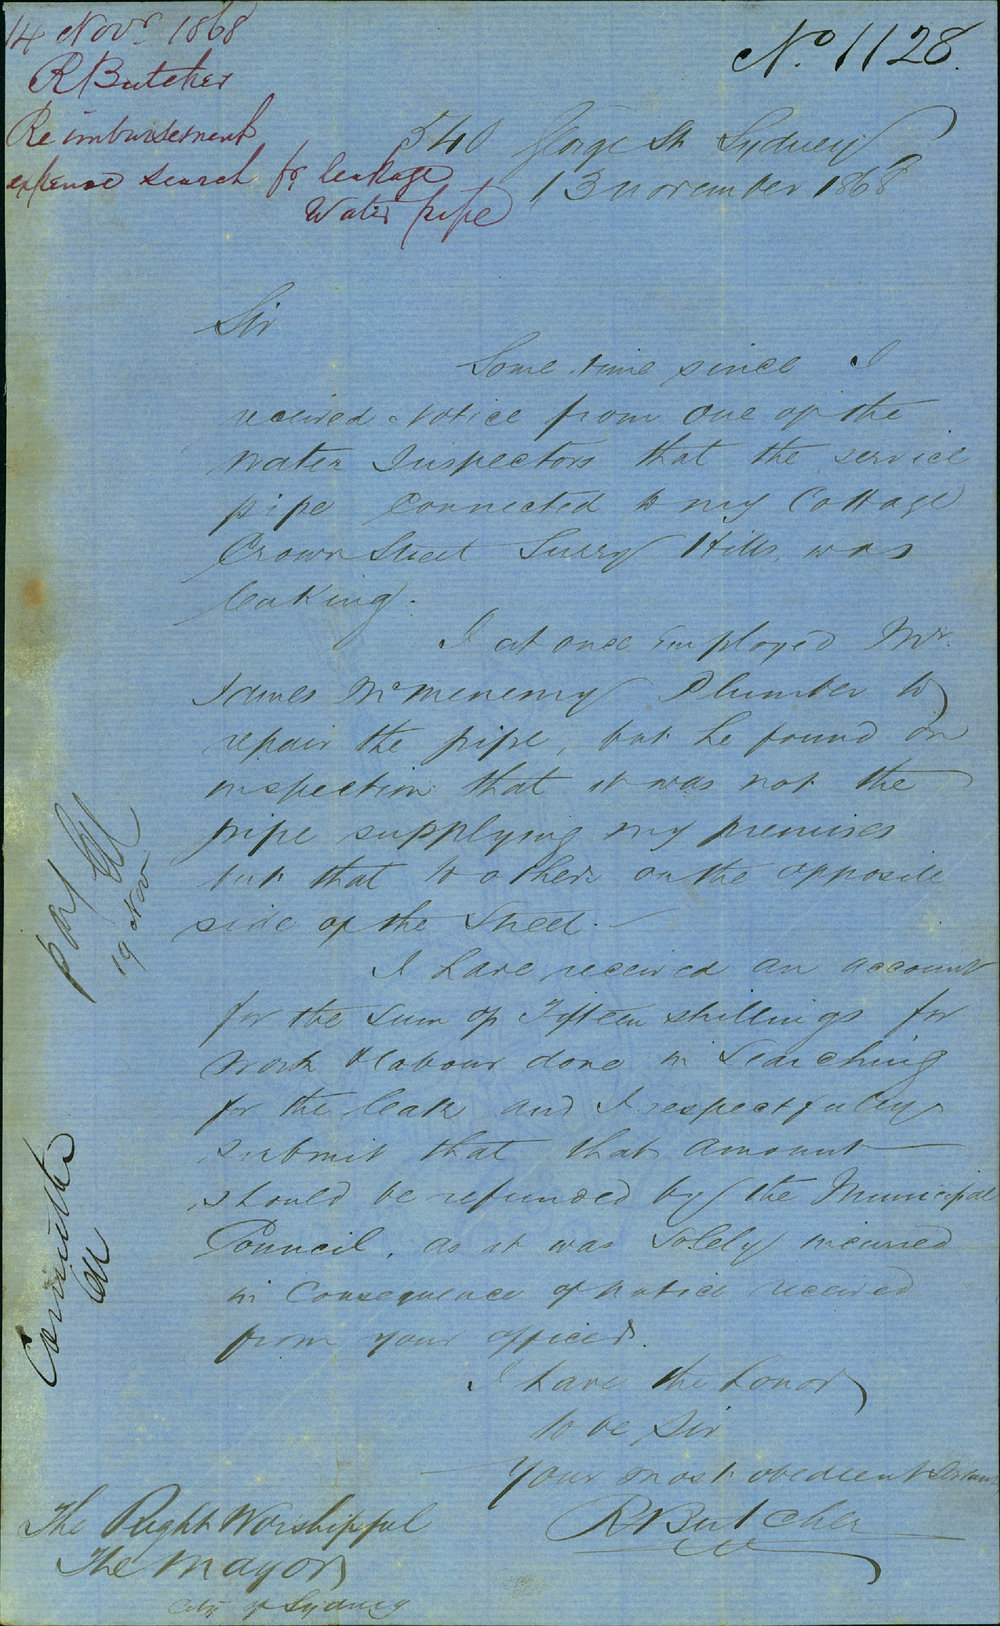 14 Novr. 1868
R Butcher
Reimbursement
expense search for leakage
Water pipe
No. 1128.
540 George St Sydney
13 November 1868
Sir
Some time since I
received Notice from one of the
Water Inspectors that the service
pipe connected to my Cottage
Crown Street Surry Hills, was
leaking.
I at once employed Mr.
James McMenemy Plumber to
repair the pipe, but he found on
inspection that it was not the
pipe supplying my premises
but that to others on the opposite
side of the Street.
I have received an account
for the sum of Fifteen shillings for
work & labour done in searching
for the leak and I respectfully
submit that that amount
should be refunded by the Municipal
Council, as it was solely incurred
in Consequence of notice received
from your officer.
I have the honor
to be Sir
Your most obedient Servant
R Butcher
The Right Worshipful
The Mayor
City of Sydney
pay
19 Nov
Committee